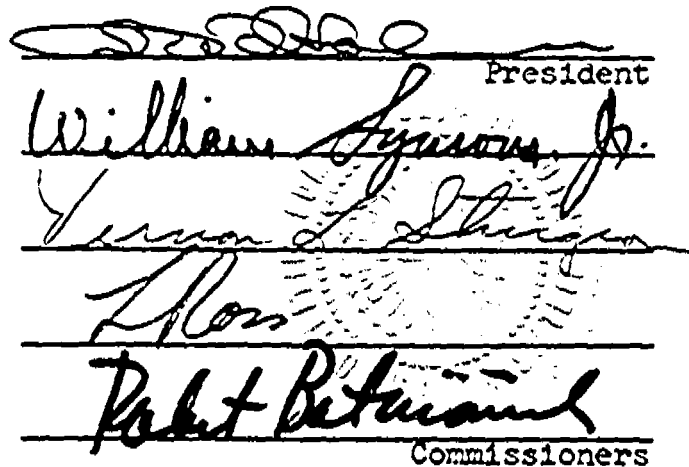 President
William Symons, Jr.
Vernon L. Sturgeon
Robert Batinovich
Commissioners